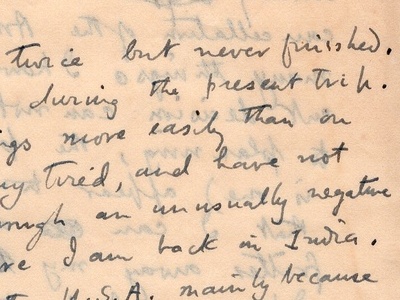 twice but never finished.
during the present trip.
ngs more easily than on
ny tired, and have not
rough an unusually negative
re I am back in India.
U.S.A. mainly because